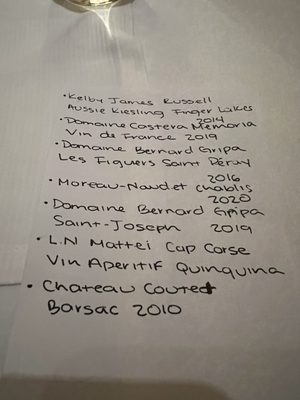 • Kelby James Russell
Aussie Riesling Finger Lakes
2014
• Domaine Costera Memoria
Vin de France 2019
• Domaine Bernard Gripa
Les Figuiers Saint Péray
2016
• Moreau-Naudet Chablis
2020
• Domaine Bernard Gripa
Saint-Joseph 2019
• L.N Mattei Cap Corse
Vin Aperitif Quinquina
• Chateau Coutet
Barsac 2010